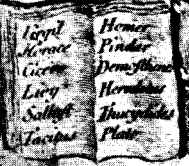 Virgil
Horace
Cicero
Livy
Sallust
Tacitus
Homer
Pindar
Demosthenes
Herodotus
Thucydides
Plato